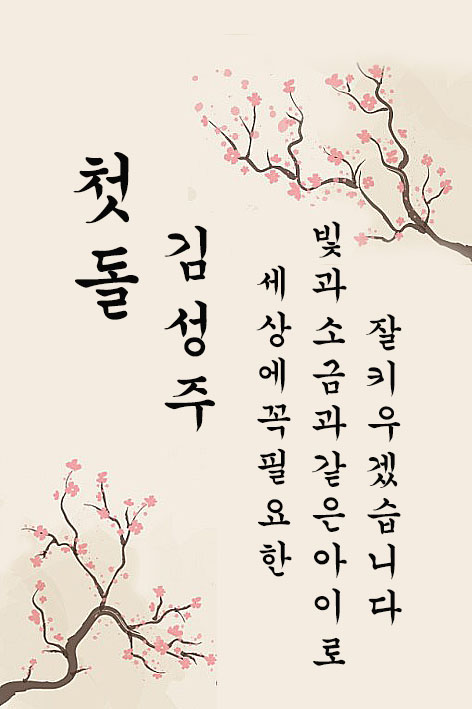 첫돌
김성주
세상에꼭필요한
빛과소금과같은아이로
잘키우겠습니다